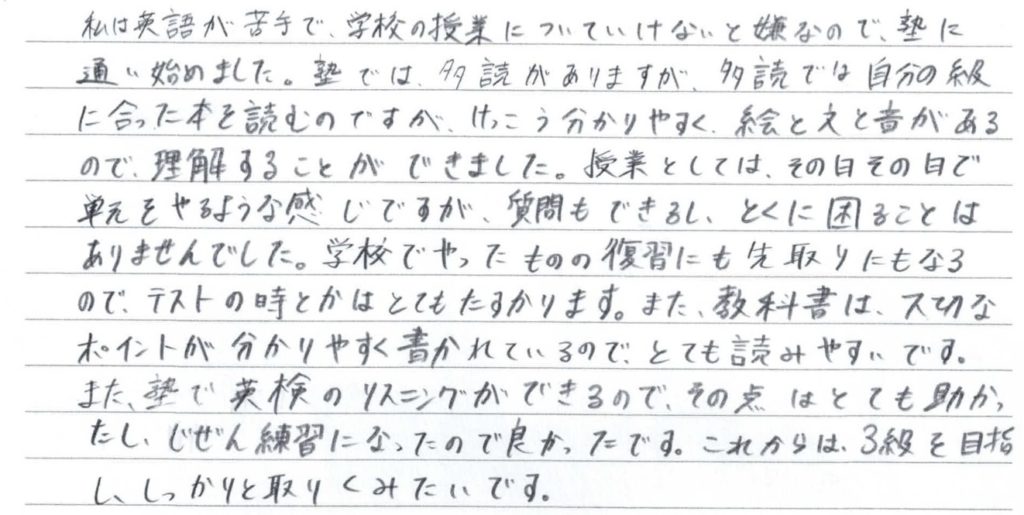 私は英語が苦手で、学校の授業についていけないと嫌なので、塾に
通い始めました。塾では、多読がありますが、多読では自分の級
に合った本を読むのですが、けっこう分かりやすく、絵と文と音がある
ので、理解することができました。授業としては、その日その日で
単元をやるような感じですが、質問もできるし、とくに困ることは
ありませんでした。学校でやったものの復習にも先取りにもなる
ので、テストの時とかはとてもたすかります。また、教科書は、大切な
ポイントが分かりやすく書かれているので、とても読みやすいです。
また、塾で英検のリスニングができるので、その点はとても助かっ
たし、じぜん練習になったので良かったです。これからは、3級を目指
し、しっかりと取りくみたいです。